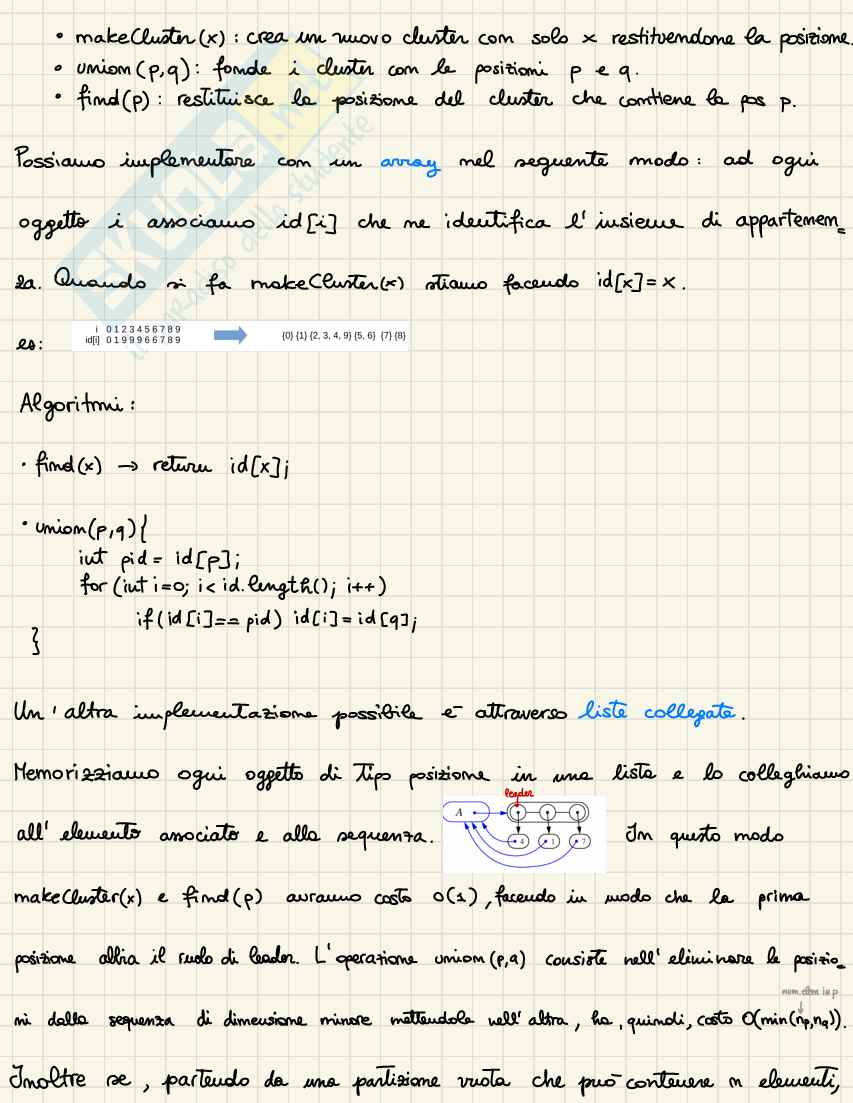 • makeCluster(x) : crea un nuovo cluster con solo x restituendone la posizione.
• union(p,q): fonde i cluster con le posizioni p e q.
• find(p): restituisce la posizione del cluster che contiene la pos p.
Possiamo implementare con un array nel seguente modo: ad ogni
oggetto i associamo id[i] che ne identifica l'insieme di appartenen=
za. Quando si fa makeCluster(x) stiamo facendo id[x]=x.
es:
i 0 1 2 3 4 5 6 7 8 9
id[i] 0 1 9 9 9 6 6 7 8 9
{0} {1} {2, 3, 4, 9} {5, 6} {7} {8}
Algoritmi:
• find(x) → return id[x];
• union(p,q){
int pid = id[p];
for (int i=0; i< id.length(); i++)
if(id[i]== pid) id[i]=id[q];
}
Un'altra implementazione possibile è attraverso liste collegate.
Memorizziamo ogni oggetto di tipo posizione in una lista e lo colleghiamo
leader
A
4 1 7
all'elemento associato e alla sequenza. In questo modo
makeCluster(x) e find(p) avranno costo O(1), facendo in modo che la prima
posizione abbia il ruolo di leader. L'operazione union(p,q) consiste nell'eliminare le posizio=
num. elem in p
ni dalla sequenza di dimensione minore mettendola nell'altra, ha, quindi, costo O(min(np,nq)).
Inoltre se, partendo da una partizione vuota che può contenere n elementi,
SKUOLA.net
il paradiso dello studente